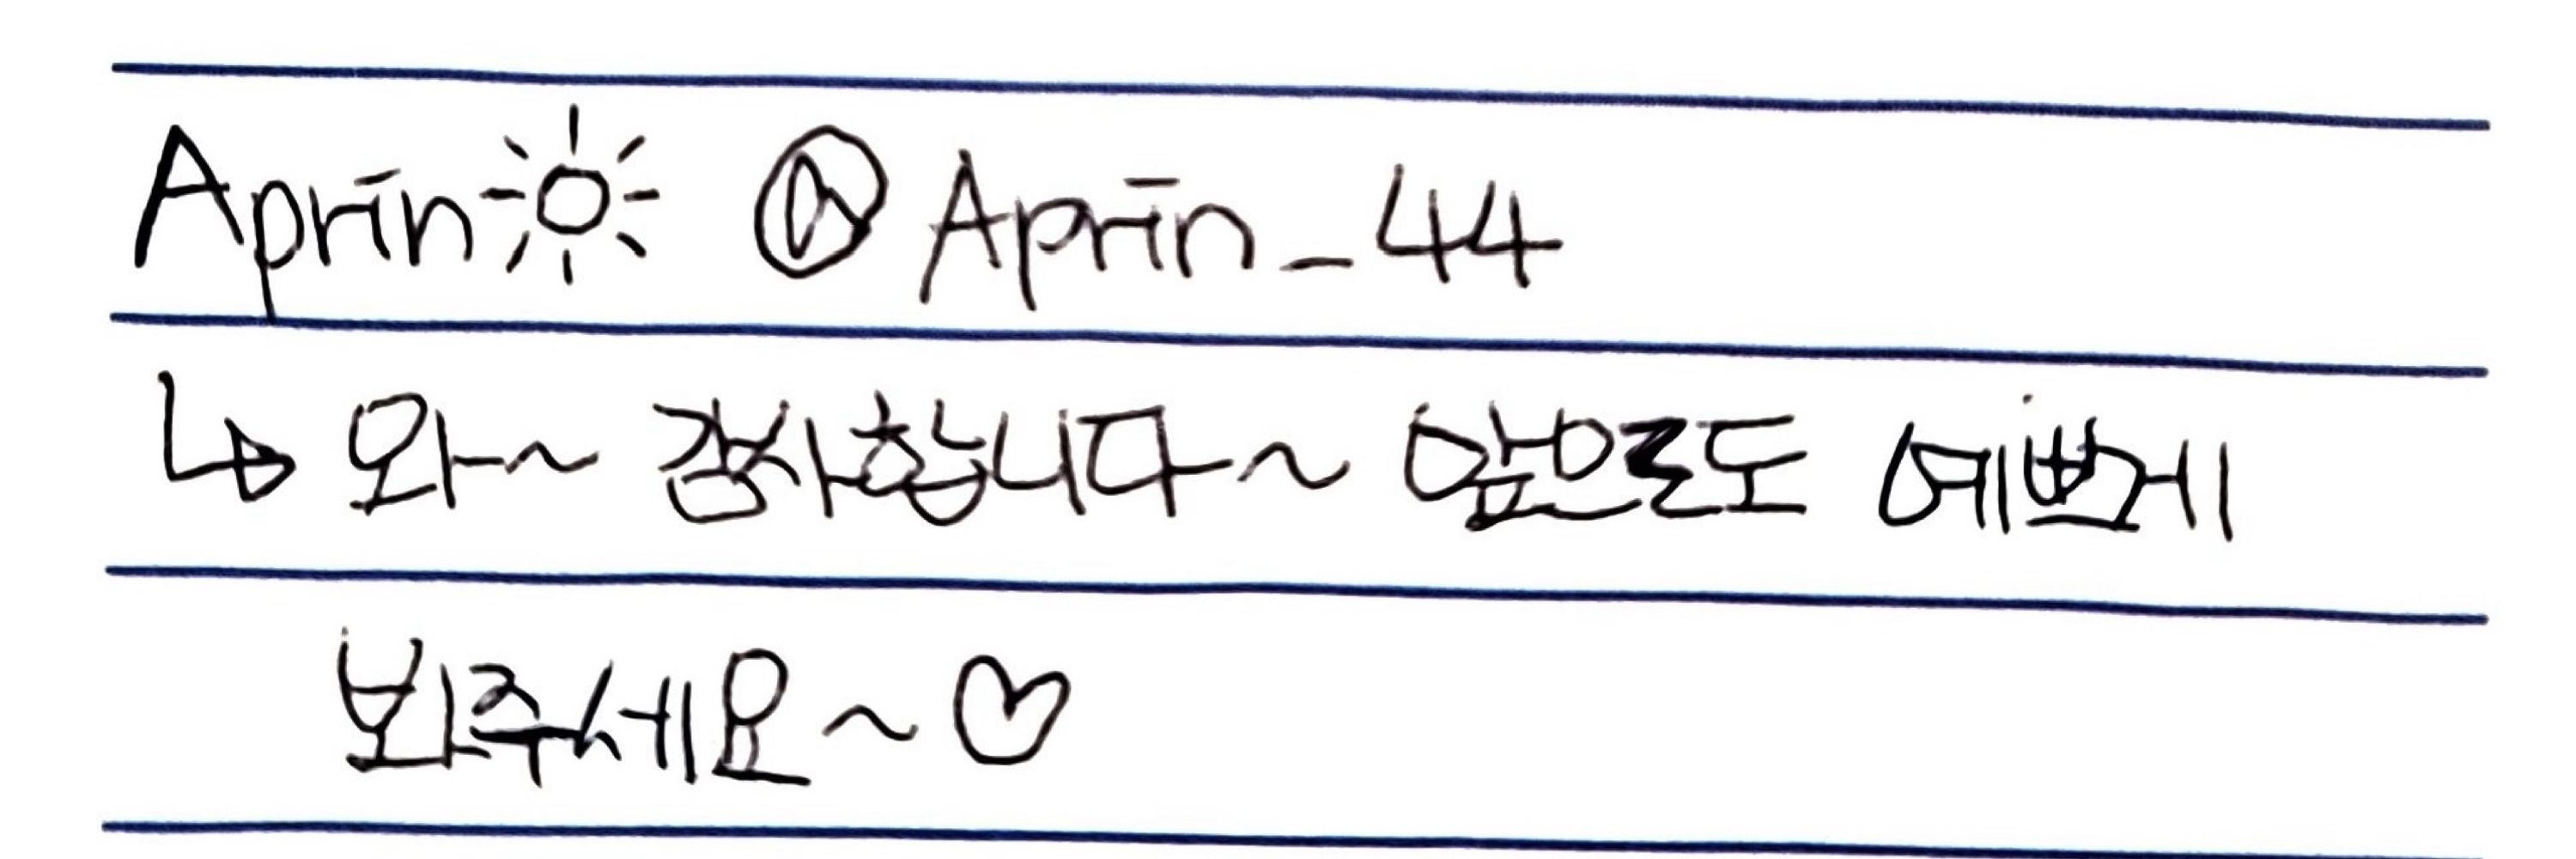 Aprin☀ Ⓓ Aprin_44
↳ 와~ 감사합니다~ 앞으로도 예쁘게
봐주세요~♡